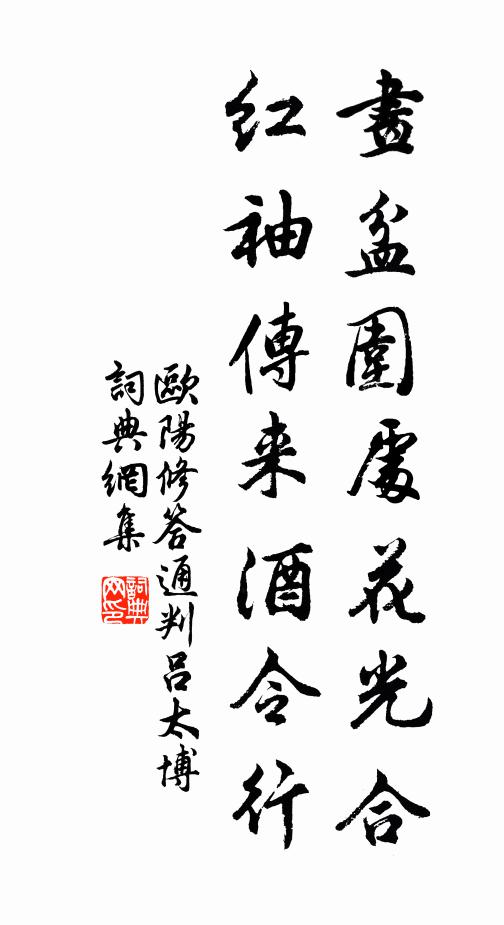 畫盆圍處花光合
紅袖傳来酒令行
歐陽修答通判吕太博
詞典網集
詞典網印